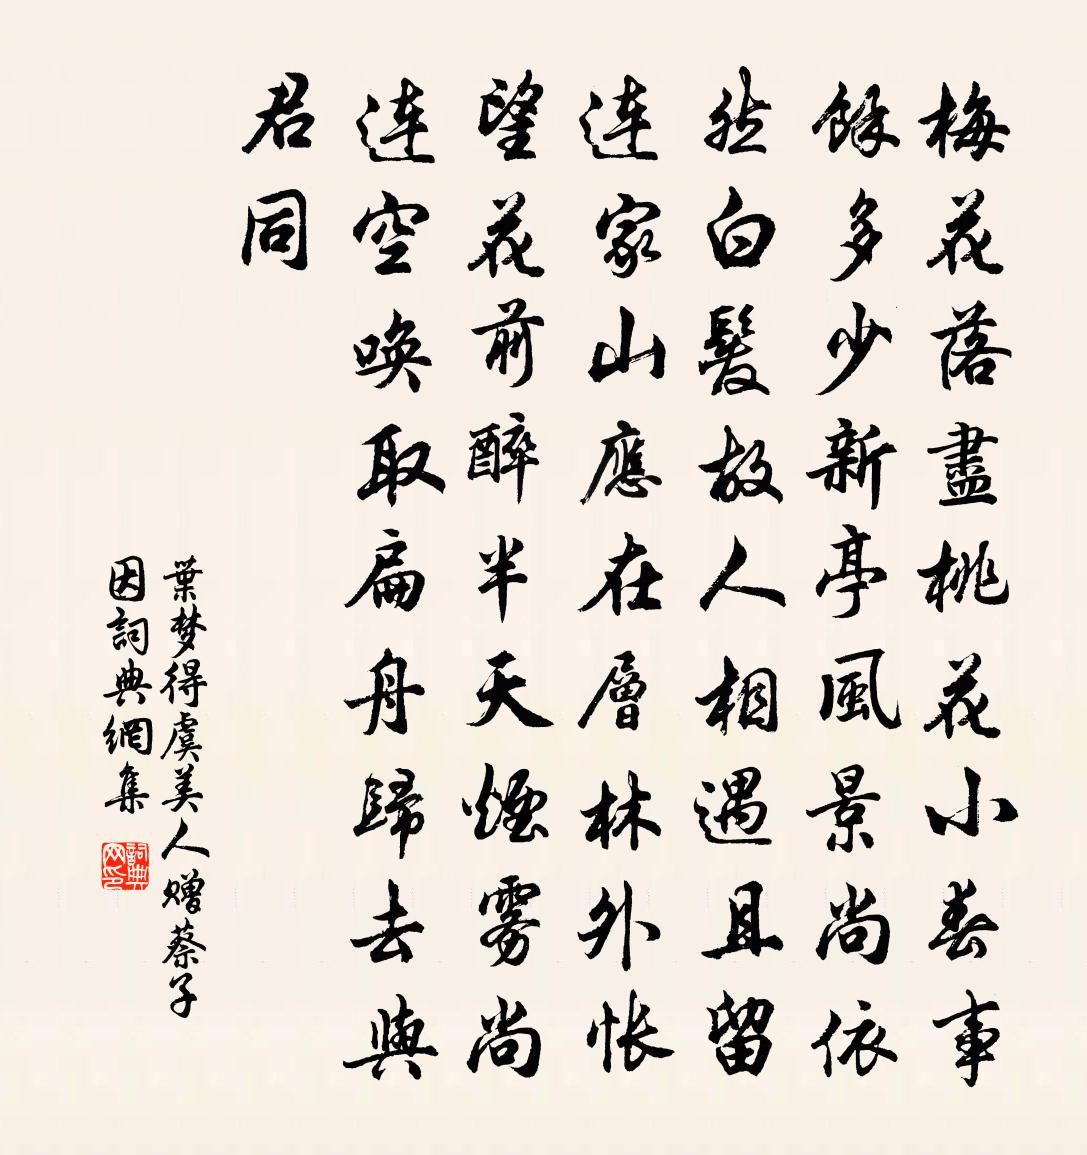 梅花落盡桃花小春事
餘多少新亭風景尚依
然白髮故人相遇且留
連家山應在層林外悵
望花前醉半天煙雾尚
連空喚取扁舟歸去與
君同
葉梦得虞美人赠蔡子
因詞典網集
詞典网印